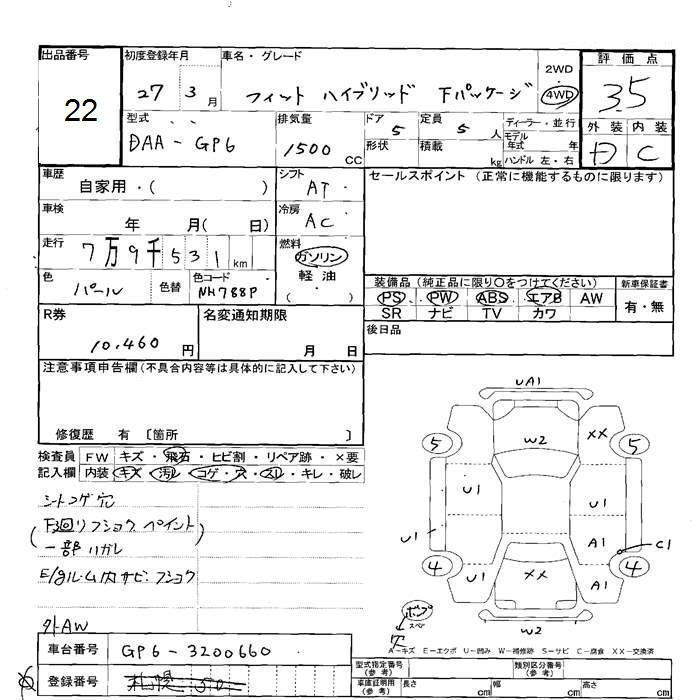 出品番号 初度登録年月 車名・グレード 2WD 評価点
22 27 3月 フィット ハイブリッド Fパッケージ ・4WD 35
型式 排気量 ドア 5 定員 5人 ディーラー・並行 外装 内装
DAA-GP6 1500 CC 形状 積載 kg モデル年式 年 C
ハンドル 左・右
車歴 自家用・( ) シフト AT セールスポイント (正常に機能するものに限ります)
車検 年 月( 日) 冷房 AC
走行 7万9千531km 燃料 ガソリン
色 パール 色替 色コード NH788P 軽油・( )
装備品 (純正品に限り〇をつけてください) 新車保証書
PS PW ABS エアB AW 有・無
SR ナビ TV カワ
R券 10,460円 名変通知期限 月 日 後日品
注意事項申告欄(不具合内容等は具体的に記入して下さい)
修復歴 有 〔箇所 〕
検査員 FW キズ・飛石・ヒビ割・リペア跡・×要
記入欄 内装 キズ・汚レ・コゲ・穴・スレ・キレ・破レ
シートコゲ穴
(F廻リフショク ペイント
一部ハガレ)
E/gルーム内サビ・フショク
外AW
UA1
5 W2 XX 5
U1 U1
U1 A1 C1
4 U1 XX A1 4
W2
A-キズ E-エクボ U-凹み W-補修跡 S-サビ C-腐食 XX-交換済
車台番号 GP6-3200660
登録番号 札幌 510
型式指定番号(参考) 類別区分番号(参考)
車庫証明用(参考) 長さ cm 幅 cm 高さ cm